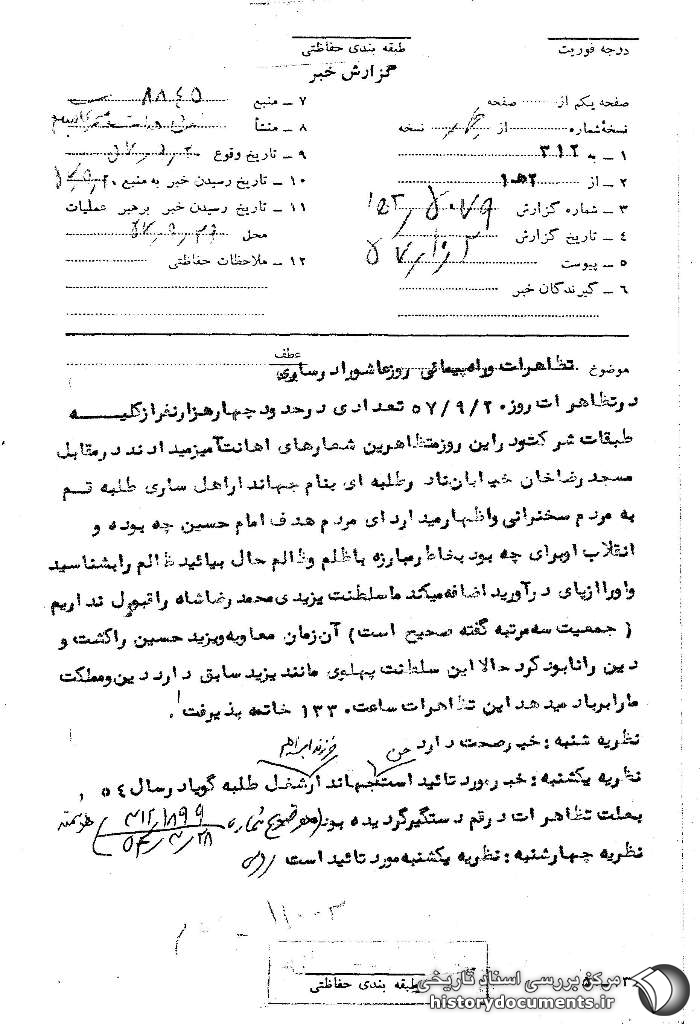 درجه فوریت
طبقه بندی حفاظتی
گزارش خبر
صفحه یکم از صفحه
نسخهٔ شماره از نسخه
۱ ــ به ۳۱۲
۲ ــ از ۲ه‍۱
۳ ــ شماره گزارش
۴ ــ تاریخ گزارش
۵ ــ پیوست
۶ ــ گیرندگان خبر
۷ ــ منبع ۸۸۴۵
۸ ــ منشأ
۹ ــ تاریخ وقوع
۱۰ ــ تاریخ رسیدن خبر به منبع
۱۱ ــ تاریخ رسیدن خبر برهبر عملیات
محل
۱۲ ــ ملاحظات حفاظتی
عطف
موضوع تظاهرات وراه پیمائی روز عاشورا درساری
درتظاهرات روز ۵۷/۹/۲۰ تعدادی درحدود چهارهزارنفر ازکلیه
طبقات شرکت‌ود راین روزمتظاهرین شعارهای اهانت‌آمیزمیدادند درمقابل
مسجد رضاخان خیابان‌نادر وطلبه ای بنام جهاند ارا‌هل ساری طلبه قم
به مردم سخنرانی واظهارمیدارد ای مردم هدف امام حسین چه بوده و
انقلاب اوبرای چه بود بخاطرمبارزه باظلم وظالم حال بیائید ظالم رابشناسید
واوراازپای درآورید اضافه‌میکند ماسلطنت یزیدی‌محمد رضاشاه راقبول نداریم
( جمعیت سه‌مرتبه گفته صحیح است ) آن‌زمان معاویه‌ویزید حسین راکشت و
دین رانابود کرد حالااین سلطنت پهلوی مانند یزید سابق دارد دین‌ومملکت
مارابرباد میدهد این تظاهرات ساعت ۱۳۳۰ خاتمه پذیرفت .
نظریه شنبه : خبرصحت دارد
حسن فرزند ابراهیم
نظریه یکشنبه : خبرمورد تائید است‌جهاند ارشغل طلبه گویاد رسال ۵۴
بعلت تظاهرات درقم دستگیرگردیده بود ( شماره ۳۱۲/۱۸۹۹
نظریه چهارشنبه : نظریه یکشنبه‌مورد تائید است
۱۱۰۰۳
طبقه بندی حفاظتی
مرکز بررسی اسناد تاریخی
historydocuments.ir